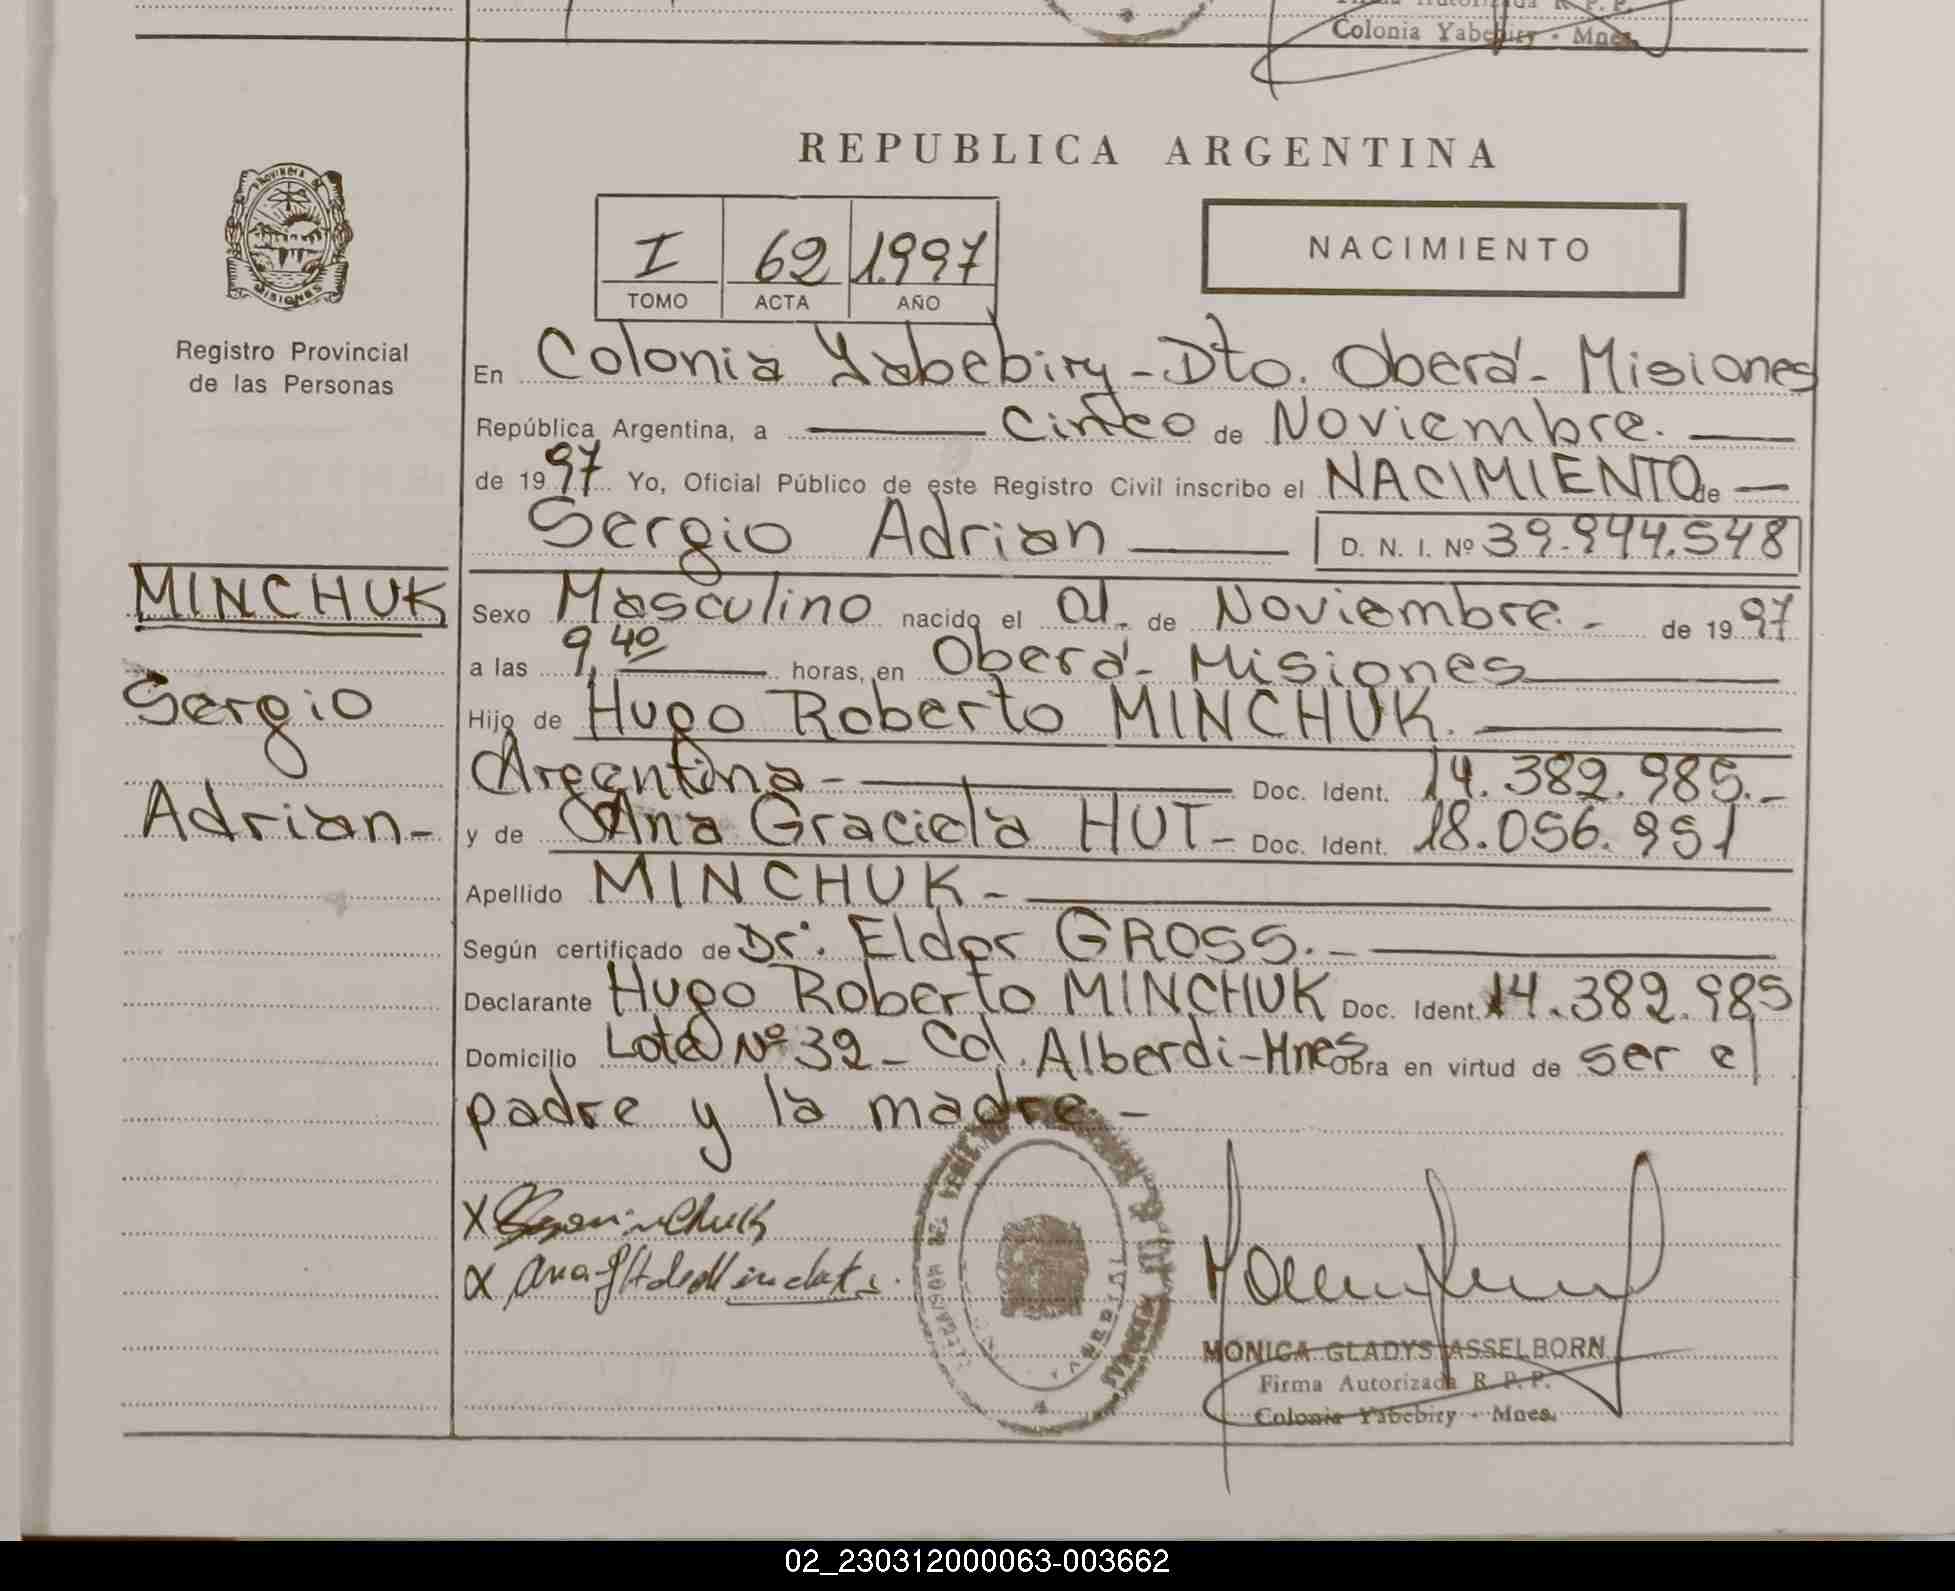 Colonia Yabebiry - Mnes.
REPUBLICA ARGENTINA
PROVINCIA DE
MISIONES
Registro Provincial
de las Personas
I 62 1.997
TOMO ACTA AÑO
NACIMIENTO
En Colonia Yabebiry - Dto. Oberá - Misiones
República Argentina, a Cinco de Noviembre.
de 1997 Yo, Oficial Público de este Registro Civil inscribo el NACIMIENTO de
Sergio Adrian D. N. I. Nº 39.944.548
MINCHUK
Sergio
Adrian-
Sexo Masculino nacido el 01. de Noviembre. - de 1997
a las 9,40 horas, en Oberá - Misiones
Hijo de Hugo Roberto MINCHUK.
Argentina - Doc. Ident. 14.382.985.-
y de Ana Graciela HUT - Doc. Ident. 18.056.951
Apellido MINCHUK -
Según certificado de Dr. Eldor GROSS. -
Declarante Hugo Roberto MINCHUK Doc. Ident. 14.382.985
Domicilio Lote Nº 32 - Col. Alberdi - Mnes obra en virtud de ser el
padre y la madre. -
MONICA GLADYS ASSELBORN
Firma Autorizada R. P. P.
Colonia Yabebiry - Mnes.
02_230312000063-003662